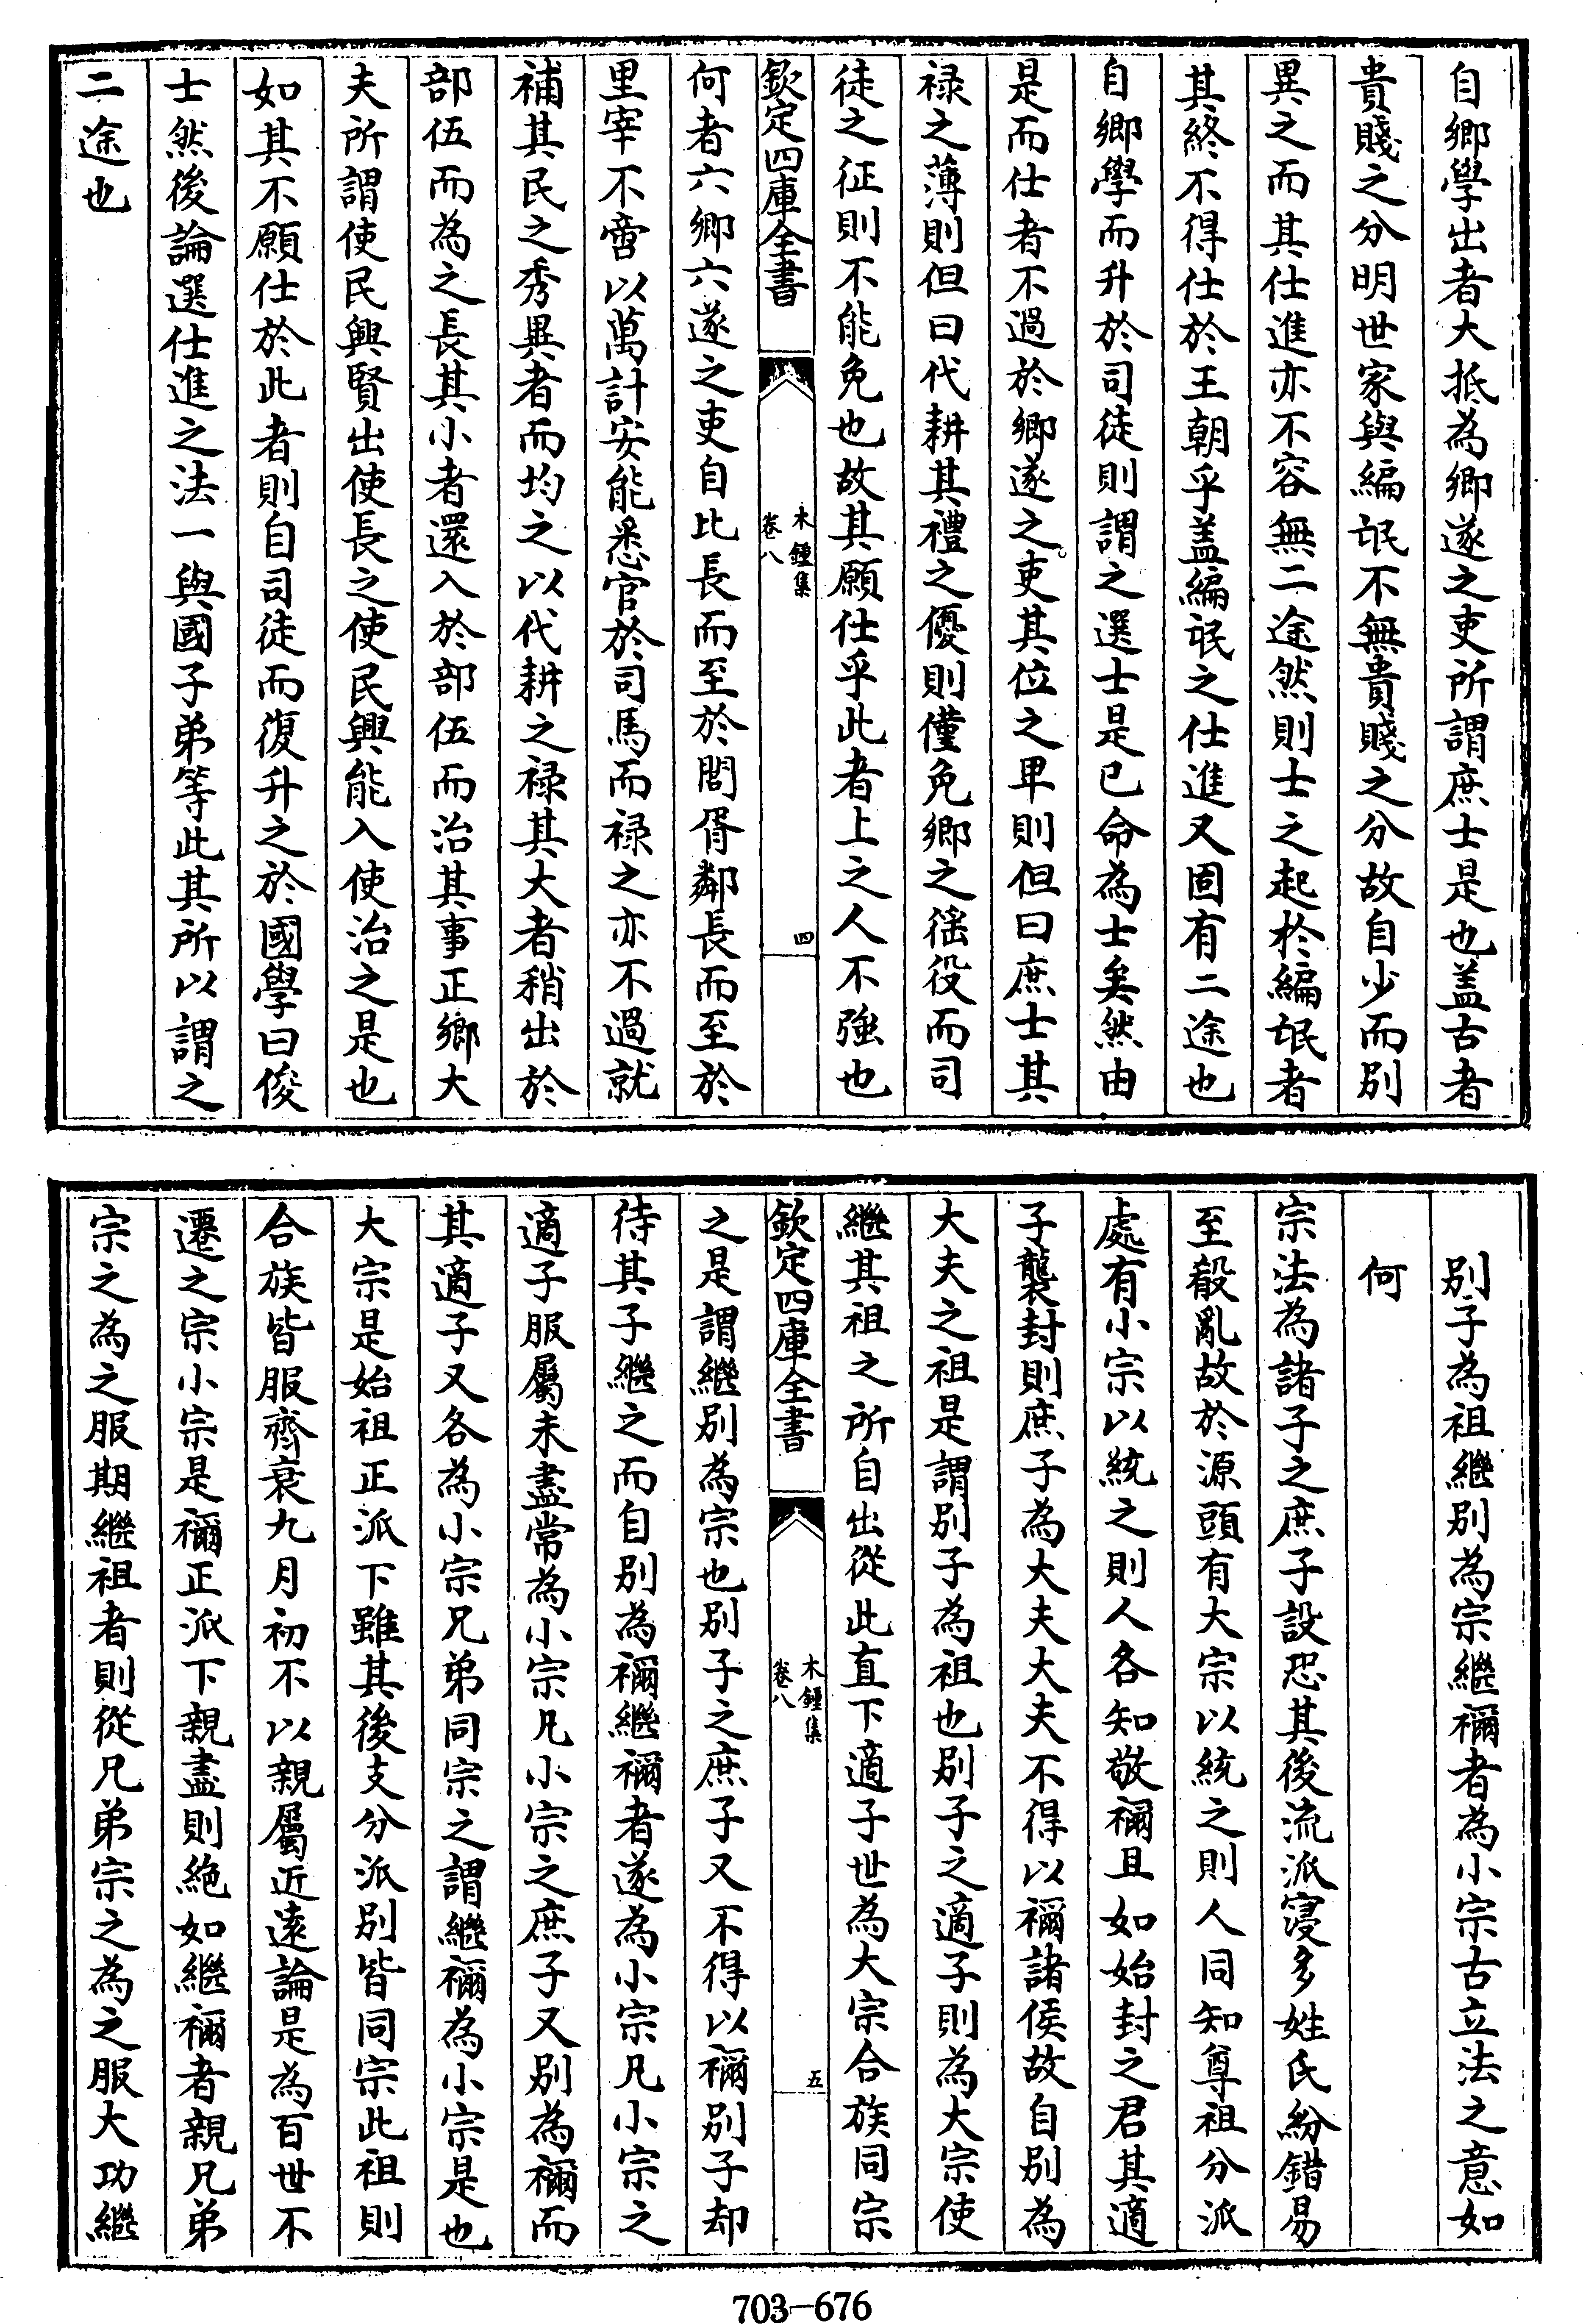 自鄉學出者大抵為鄉遂之吏所謂庶士是也盖古者
貴賤之分明世家與編氓不無貴賤之分故自少而別
異之而其仕進亦不容無二途然則士之起於編氓者
其終不得仕於王朝乎盖編氓之仕進又固有二途也
自鄉學而升於司徒則謂之選士是已命為士矣然由
是而仕者不過於鄉遂之吏其位之卑則但曰庶士其
禄之薄則但曰代耕其禮之優則僅免鄉之徭役而司
徒之征則不能免也故其願仕乎此者上之人不強也
欽定四庫全書
木鍾集
卷八
四
何者六鄉六遂之吏自比長而至於閭胥鄰長而至於
里宰不啻以萬計安能悉官於司馬而禄之亦不過就
補其民之秀異者而均之以代耕之禄其大者稍出於
部伍而為之長其小者還入於部伍而治其事正鄉大
夫所謂使民興賢出使長之使民興能入使治之是也
如其不願仕於此者則自司徒而復升之於國學曰俊
士然後論選仕進之法一與國子弟等此其所以謂之
二途也
別子為祖繼別為宗繼禰者為小宗古立法之意如
何
宗法為諸子之庶子設恐其後流派寖多姓氏紛錯易
至殽亂故於源頭有大宗以統之則人同知尊祖分派
處有小宗以統之則人各知敬禰且如始封之君其適
子襲封則庶子為大夫大夫不得以禰諸侯故自別為
大夫之祖是謂別子為祖也別子之適子則為大宗使
繼其祖之所自出從此直下適子世為大宗合族同宗
欽定四庫全書
木鍾集
卷八
五
之是謂繼別為宗也別子之庶子又不得以禰別子却
待其子繼之而自別為禰繼禰者遂為小宗凡小宗之
適子服屬未盡常為小宗凡小宗之庶子又別為禰而
其適子又各為小宗兄弟同宗之謂繼禰為小宗是也
大宗是始祖正派下雖其後支分派別皆同宗此祖則
合族皆服齊衰九月初不以親屬近遠論是為百世不
遷之宗小宗是禰正派下親盡則絶如繼禰者親兄弟
宗之為之服期繼祖者則從兄弟宗之為之服大功繼
703-676